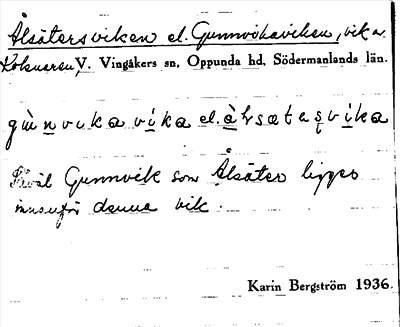 Ålsätersviken el. Gunnvikaviken, vik av
Kolsnaren, V. Vingåkers sn, Oppunda hd, Södermanlands län.
gùnvika vika el. àlsætesvika
Såväl Gunnvik som Ålsäter ligger
innanför denna vik.
Karin Bergström 1936.